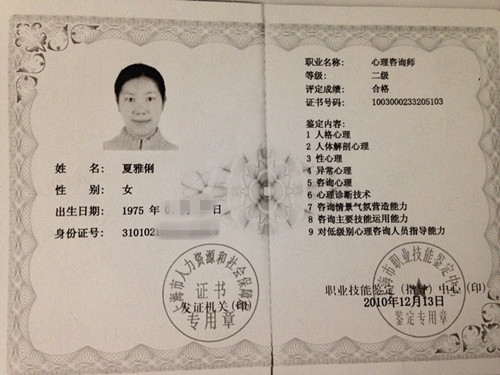 姓 名: 夏雅俐
性 别: 女
出生日期: 1975 年 日
身份证号: 3101021
上海市人力资源和社会保障局
证书
专用章
发证机关(印)
职业名称: 心理咨询师
等级: 二级
评定成绩: 合格
证书号码: 1003000233205103
鉴定内容:
1 人格心理
2 人体解剖心理
3 性心理
4 异常心理
5 咨询心理
6 心理诊断技术
7 咨询情景气氛营造能力
8 咨询主要技能运用能力
9 对低级别心理咨询人员指导能力
上海市职业技能鉴定中心
职业技能鉴定(指导)中心(印)
2010年12月13日
鉴定专用章